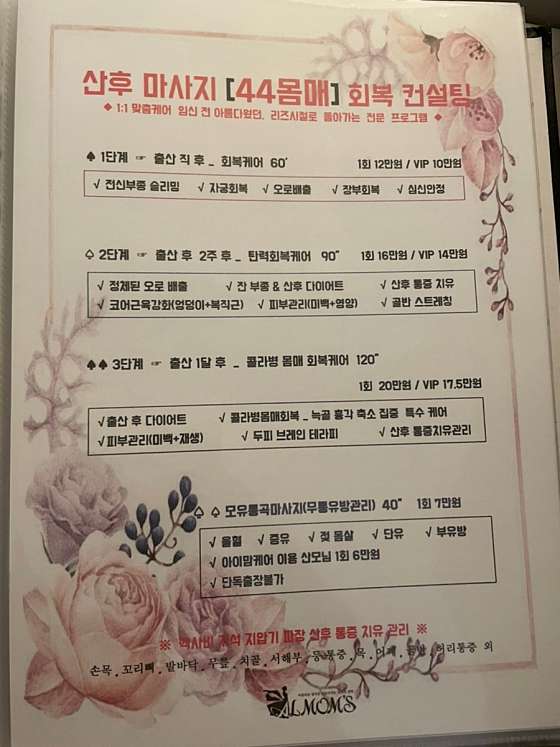 산후 마사지 [44몸매] 회복 컨설팅
◆ 1:1 맞춤케어 임신 전 아름다웠던, 리즈시절로 돌아가는 전문 프로그램 ◆
♠ 1단계 ☞ 출산 직 후 _ 회복케어 60' 1회 12만원 / VIP 10만원
√ 전신부종 슬리밍 √ 자궁회복 √ 오로배출 √ 장부회복 √ 심신안정
♤ 2단계 ☞ 출산 후 2주 후 _ 탄력회복케어 90" 1회 16만원 / VIP 14만원
√ 정체된 오로 배출 √ 잔 부종 & 산후 다이어트 √ 산후 통증 치유
√ 코어근육강화(엉덩이+복직근) √ 피부관리(미백+영양) √ 골반 스트레칭
♠♠ 3단계 ☞ 출산 1달 후 _ 콜라병 몸매 회복케어 120"
1회 20만원 / VIP 17.5만원
√출산 후 다이어트 √ 콜라병몸매회복 _ 늑골 흉각 축소 집중 특수 케어
√피부관리(미백+재생) √ 두피 브레인 테라피 √ 산후 통증치유관리
♤ ♤ 모유통곡마사지(무통유방관리) 40" 1회 7만원
√ 울혈 √ 증유 √ 젖 몸살 √ 단유 √ 부유방
√ 아이맘케어 이용 산모님 1회 6만원
√ 단독출장불가
※ 지압기 파장 산후 통증 치유 관리 ※
손목 . 꼬리뼈 . 발바닥 . 무릎 . 치골 . 서해부 . 등통증 . 목 . 어깨 . 골반 . 허리통증 외
ALMOM'S